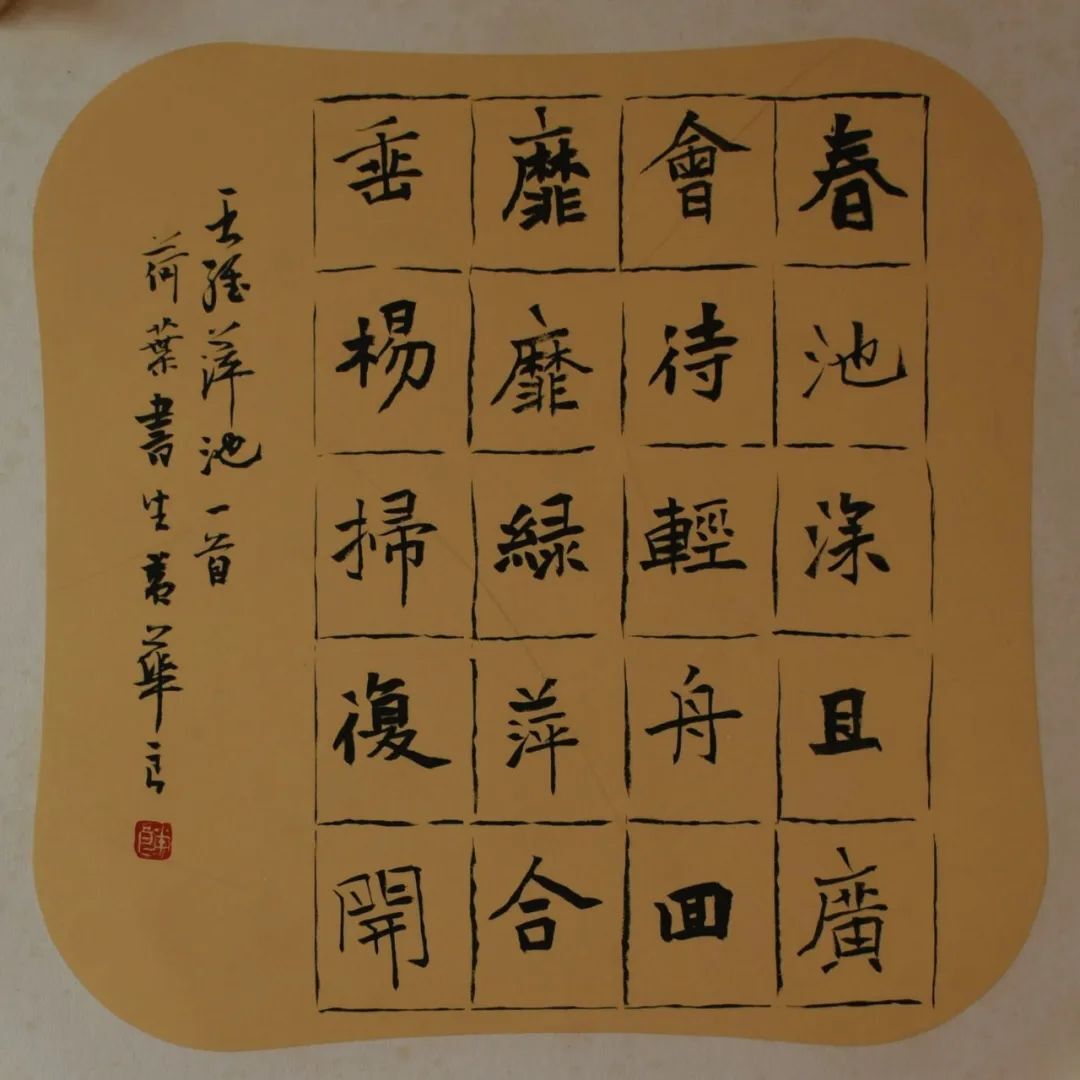 春池深且廣
會待輕舟回
靡靡緑萍合
垂楊掃復開
王維萍池一首
荷葉書生黃華良